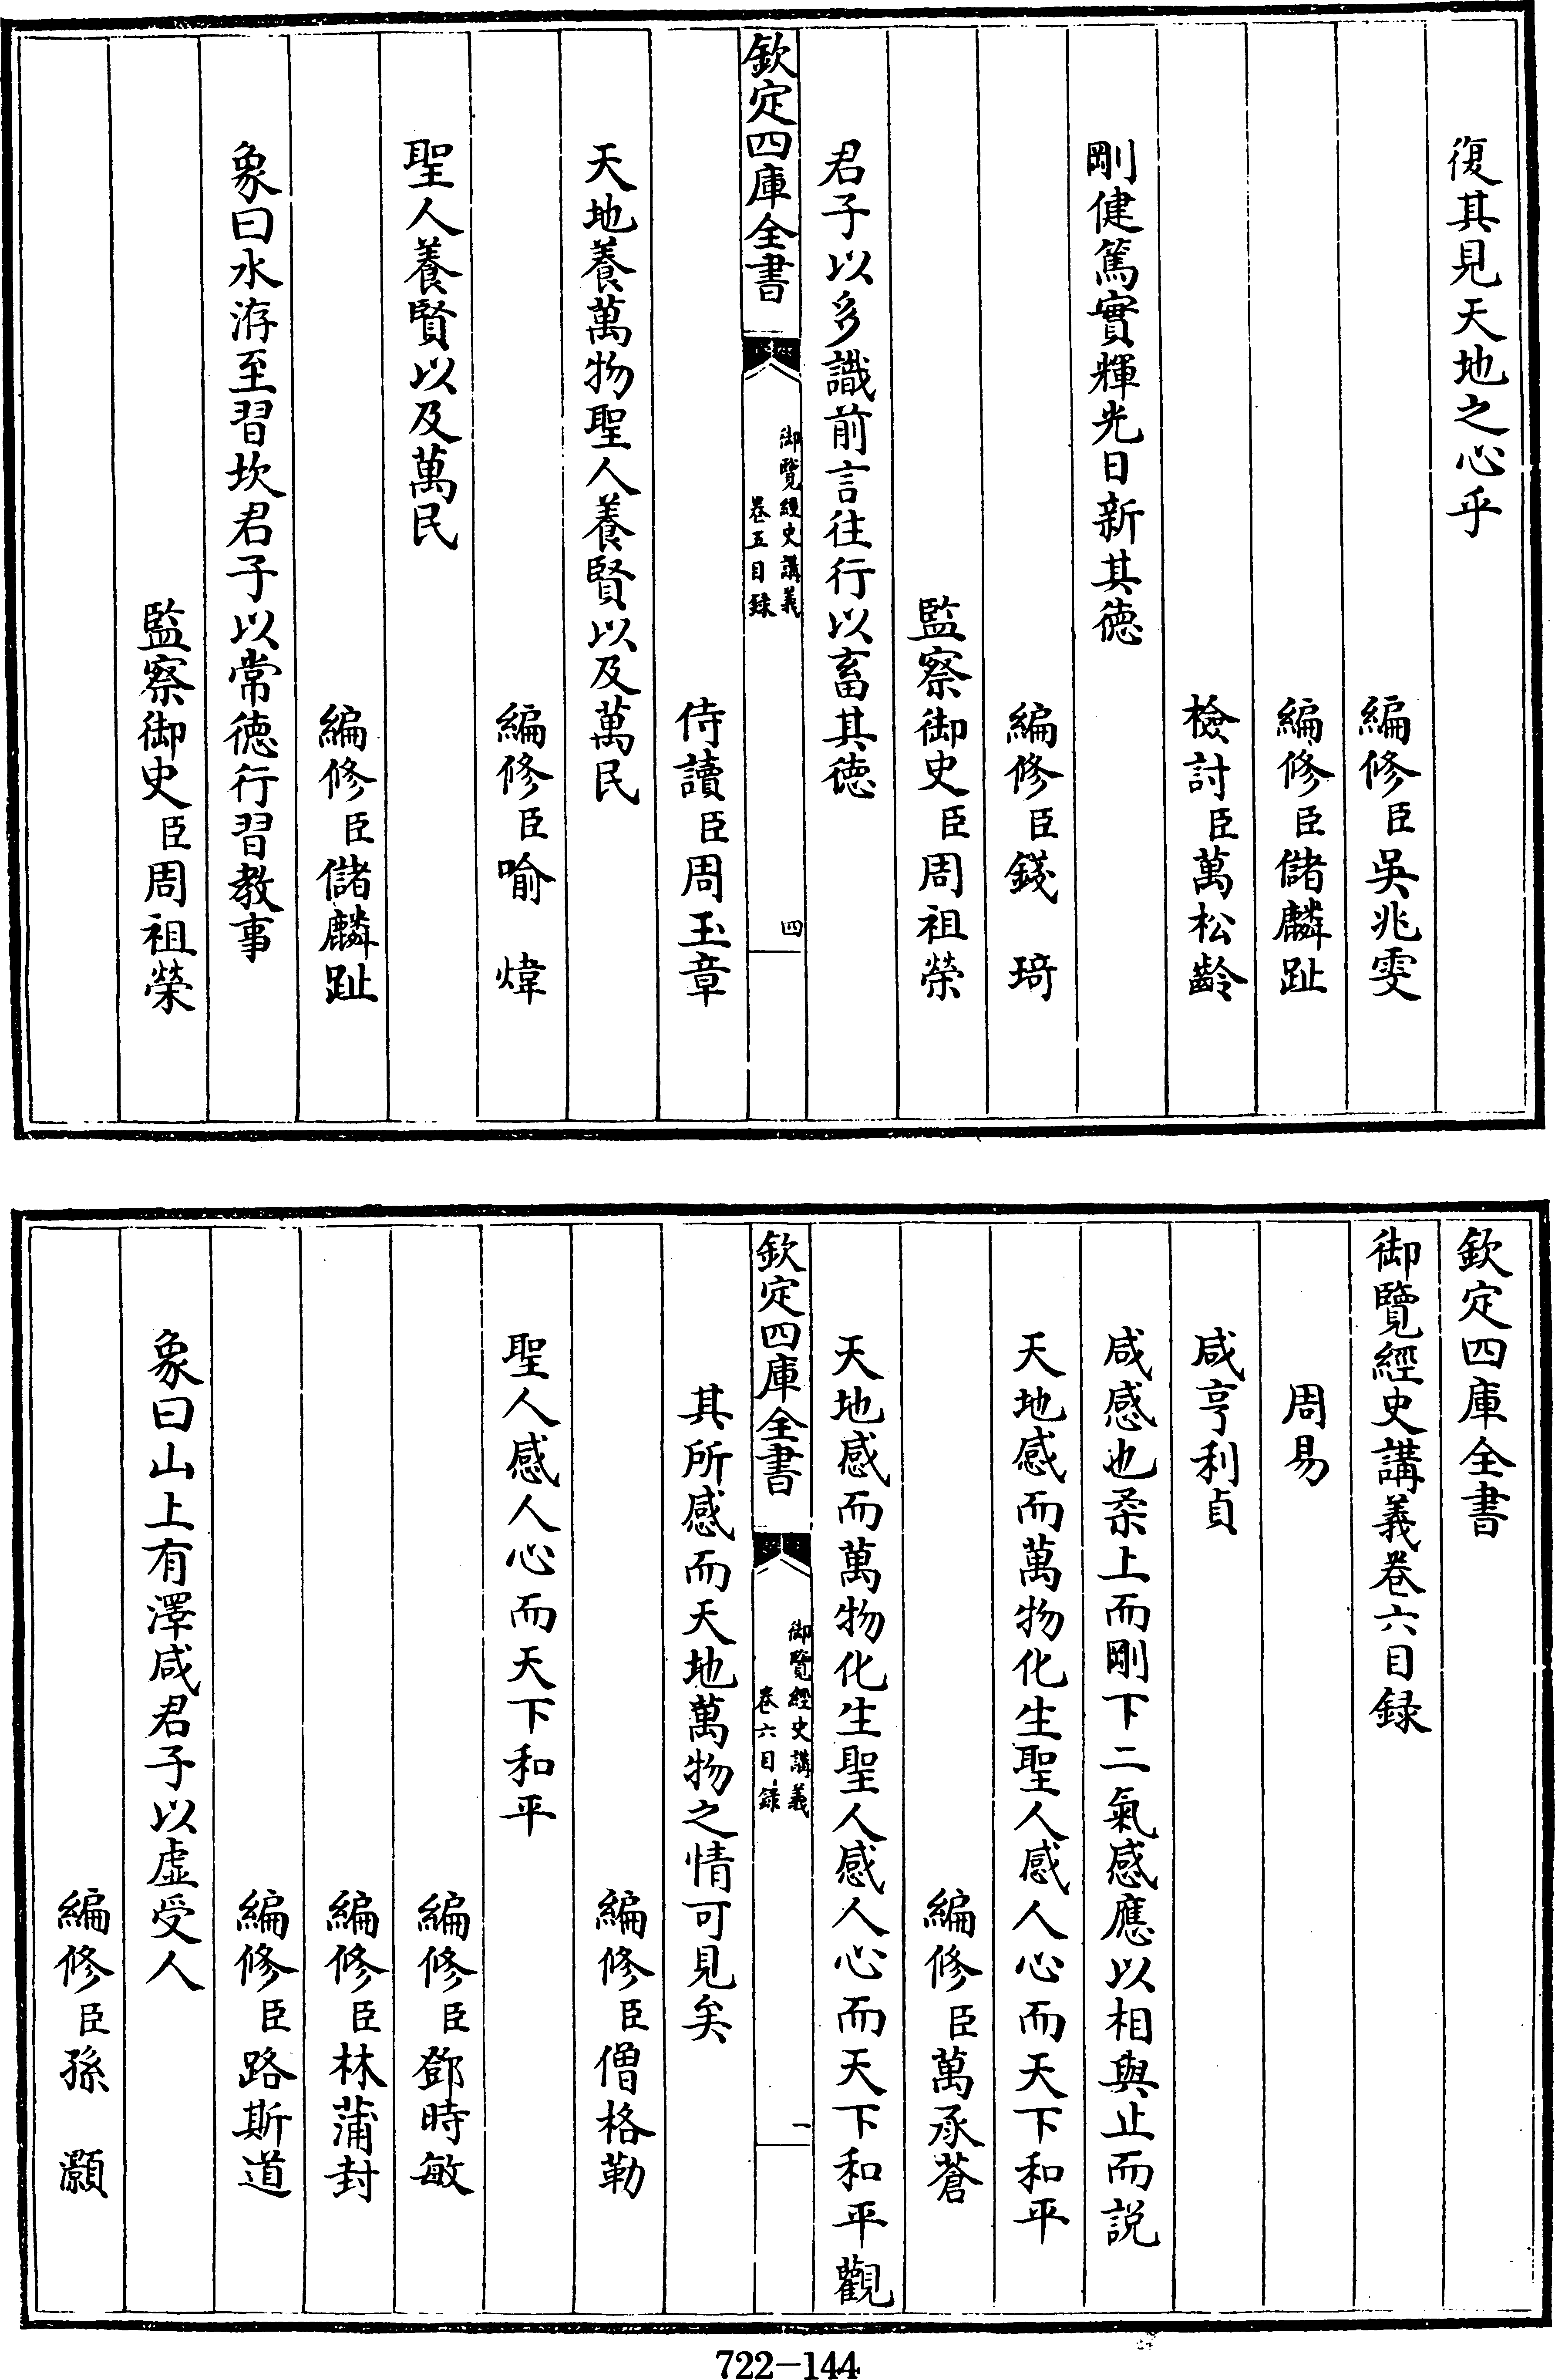 復其見天地之心乎
編修臣吳兆雯
編修臣儲麟趾
檢討臣萬松齡
剛健篤實輝光日新其德
編修臣錢　琦
監察御史臣周祖榮
君子以多識前言往行以畜其德
欽定四庫全書
御覽經史講義
卷五目録
四
侍讀臣周玉章
天地養萬物聖人養賢以及萬民
編修臣喻　煒
聖人養賢以及萬民
編修臣儲麟趾
象曰水洊至習坎君子以常德行習教事
監察御史臣周祖榮
欽定四庫全書
御覽經史講義卷六目録
周易
咸亨利貞
咸感也柔上而剛下二氣感應以相與止而説
天地感而萬物化生聖人感人心而天下和平
編修臣萬承蒼
天地感而萬物化生聖人感人心而天下和平觀
欽定四庫全書
御覽經史講義
卷六目録
一
其所感而天地萬物之情可見矣
編修臣僧格勒
聖人感人心而天下和平
編修臣鄧時敏
編修臣林蒲封
編修臣路斯道
象曰山上有澤咸君子以虛受人
編修臣孫　灝
722-144